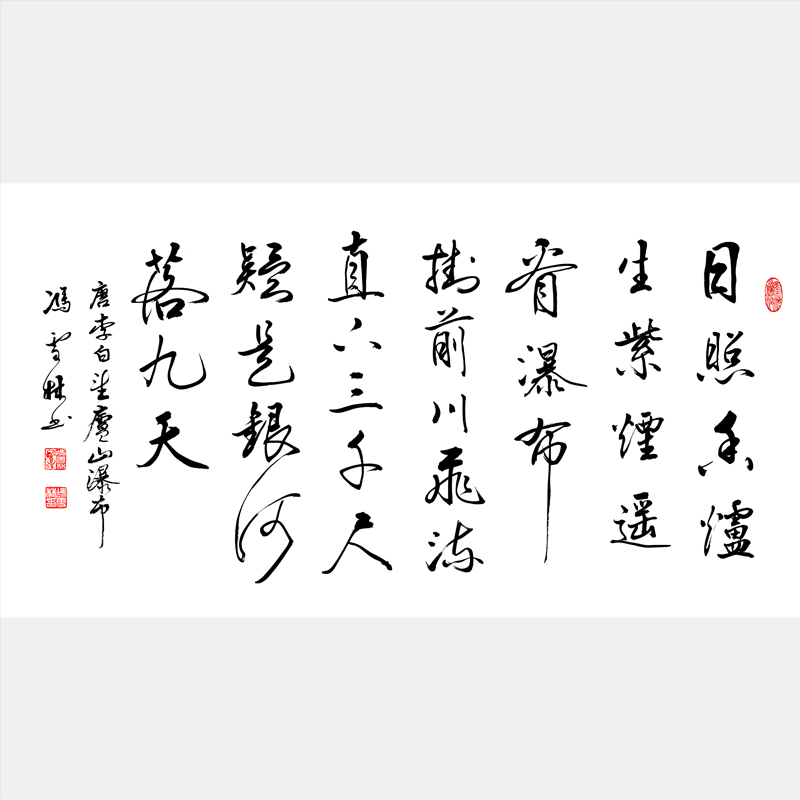 日照香爐
生紫煙遥
看瀑布
掛前川飛流
直下三千尺
疑是銀河
落九天
唐李白望廬山瀑布
馮雪林书